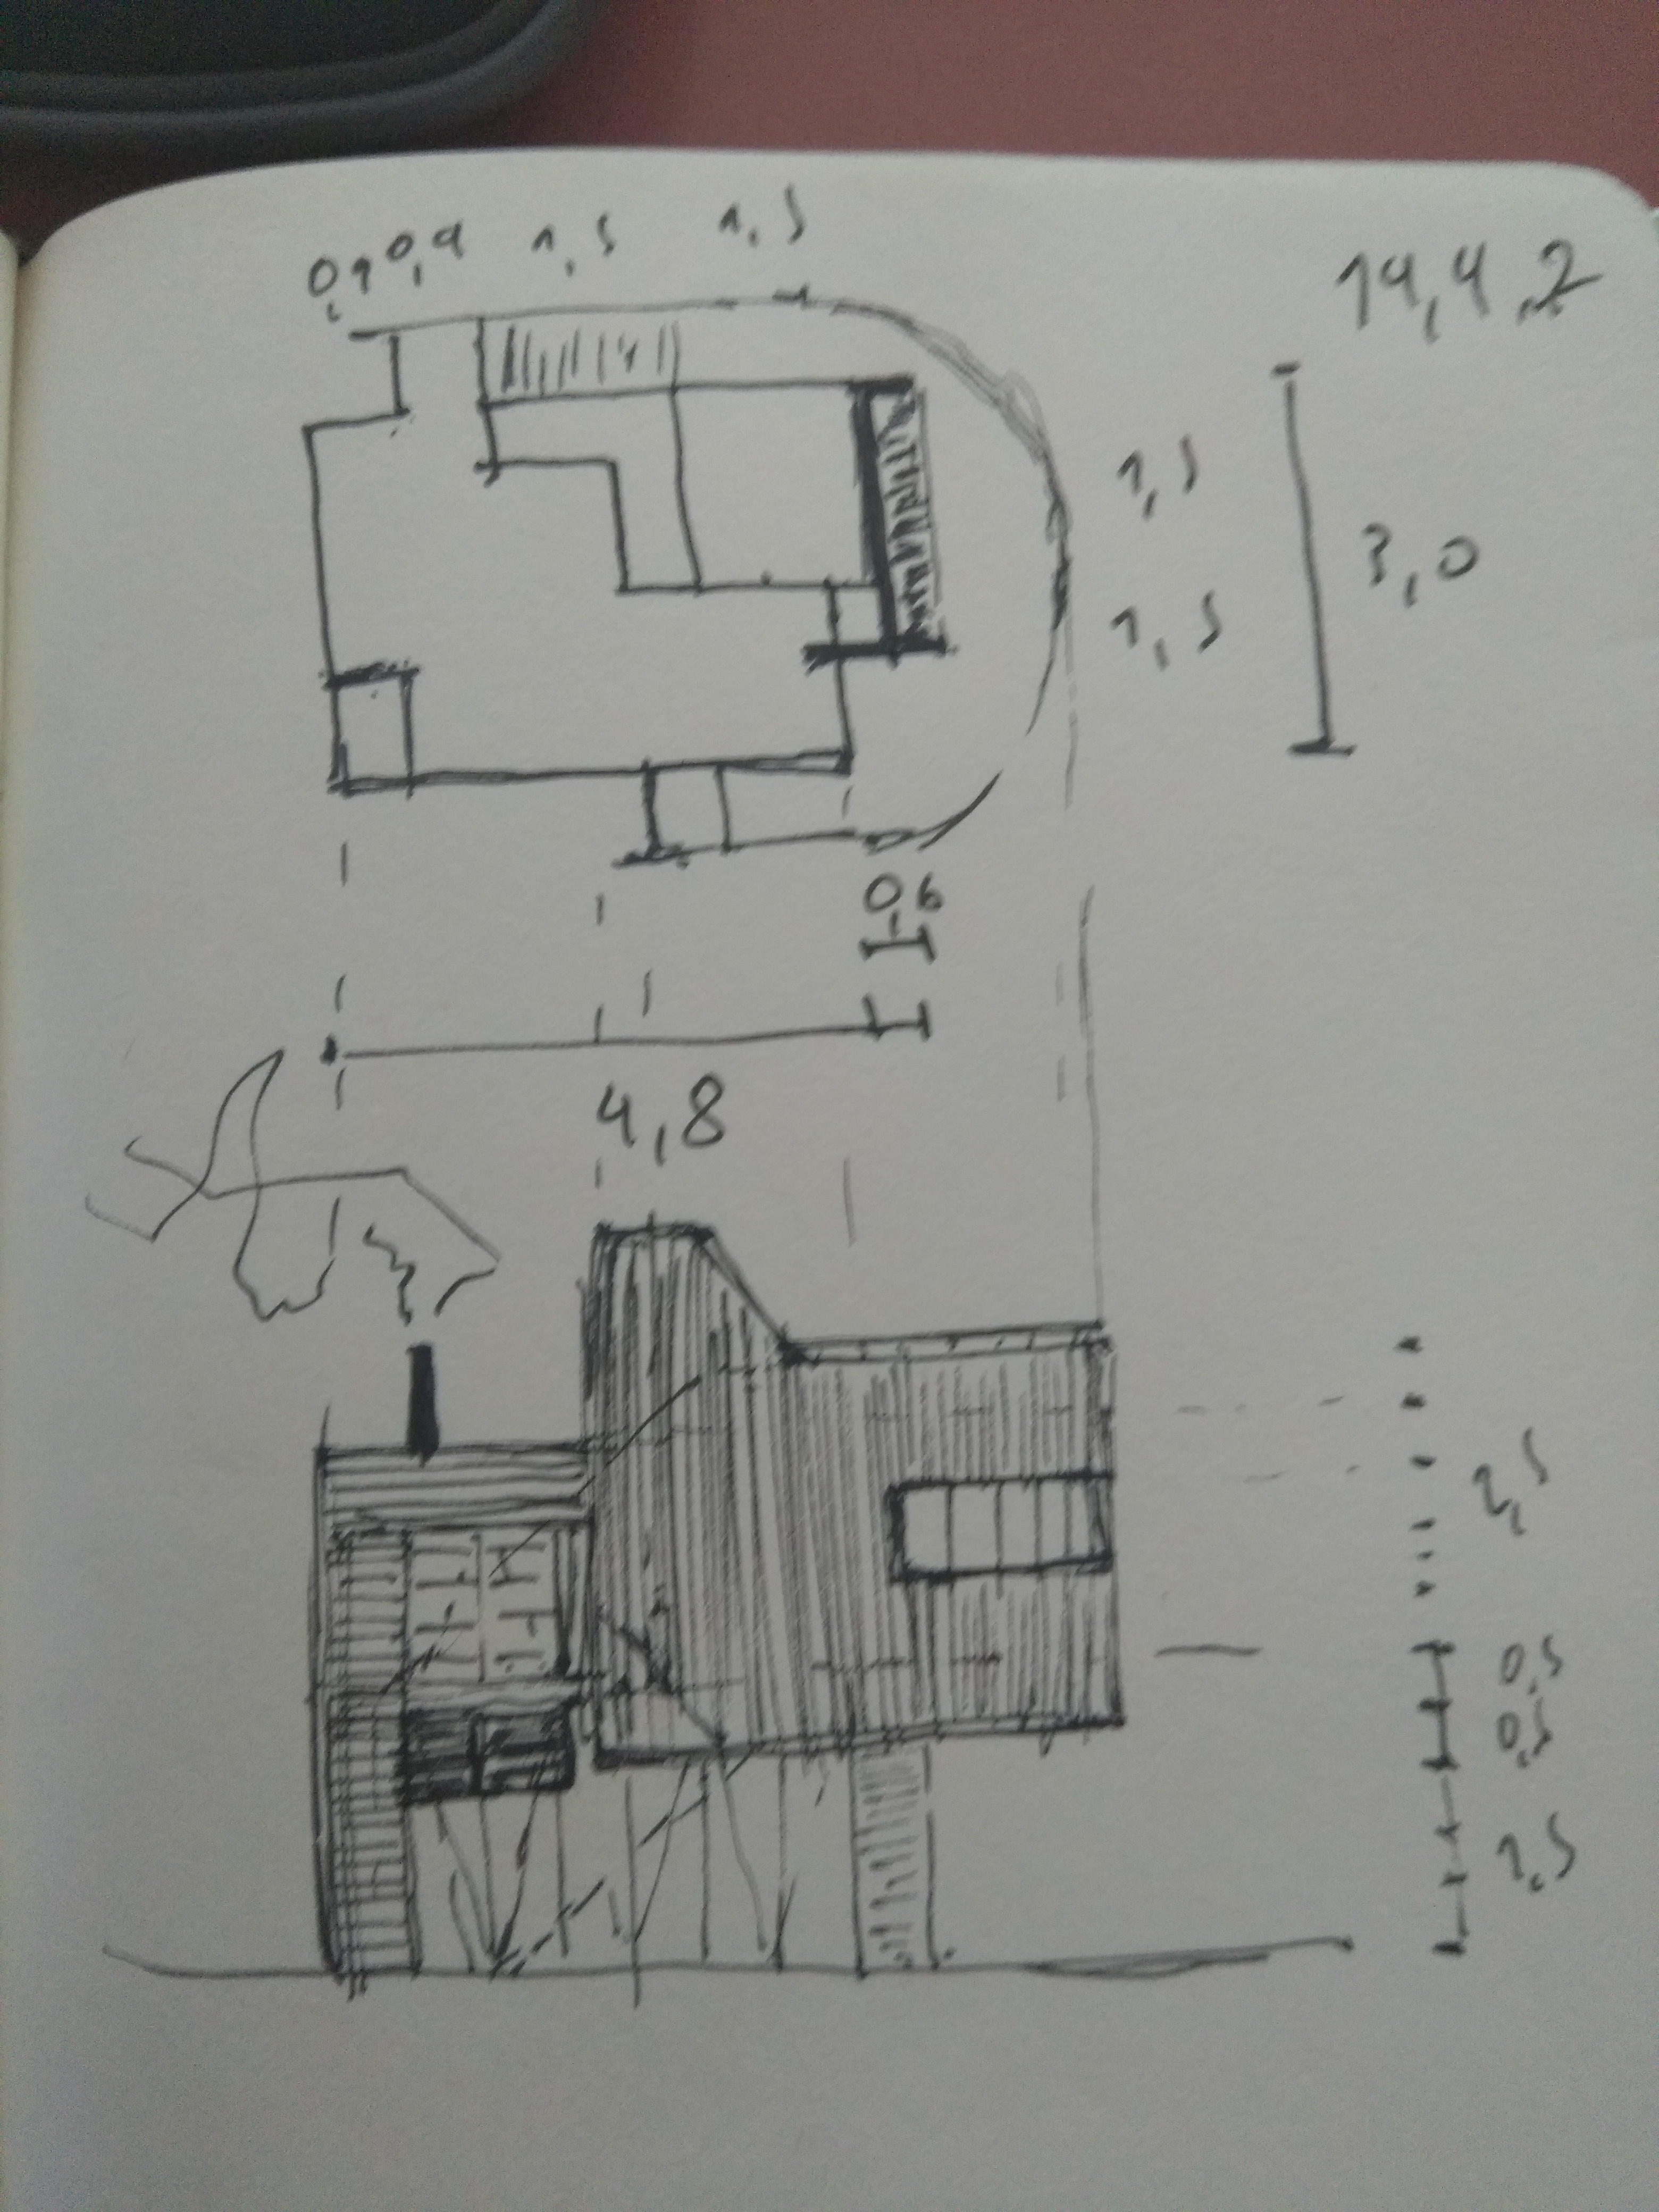 0,9 0,9 1,5 1,5
14,4 2
1,5
3,0
1,5
0,6
4,8
2,5
0,5
0,5
1,5